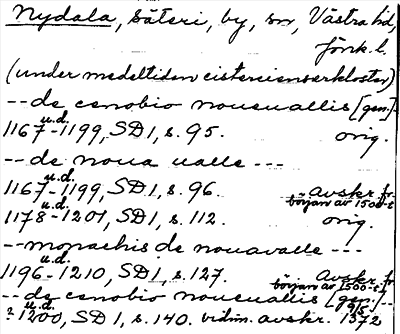 Nydala, säteri, by, sn, Västra hd,
Jönk. l.
(under medeltiden cistercienserkloster)
-- de cenobio noueuallis [gen.] -
u.d.
1167-1199, SD 1, s. 95. orig.
-- de noua ualle ---
u.d.
1167-1199, SD 1, s. 96. avskr. fr. början av 1500-t
u.d.
1178-1201, SD 1, s. 112. orig.
-- monachis de nouavalle ---
u.d.
1196-1210, SD 1, s. 127. Avskr. fr. början av 1500-t
-- de cenobio noueuallis [gen.] --
u.d.
? 1200, SD 1, s. 140. vidim. avskr. 1372